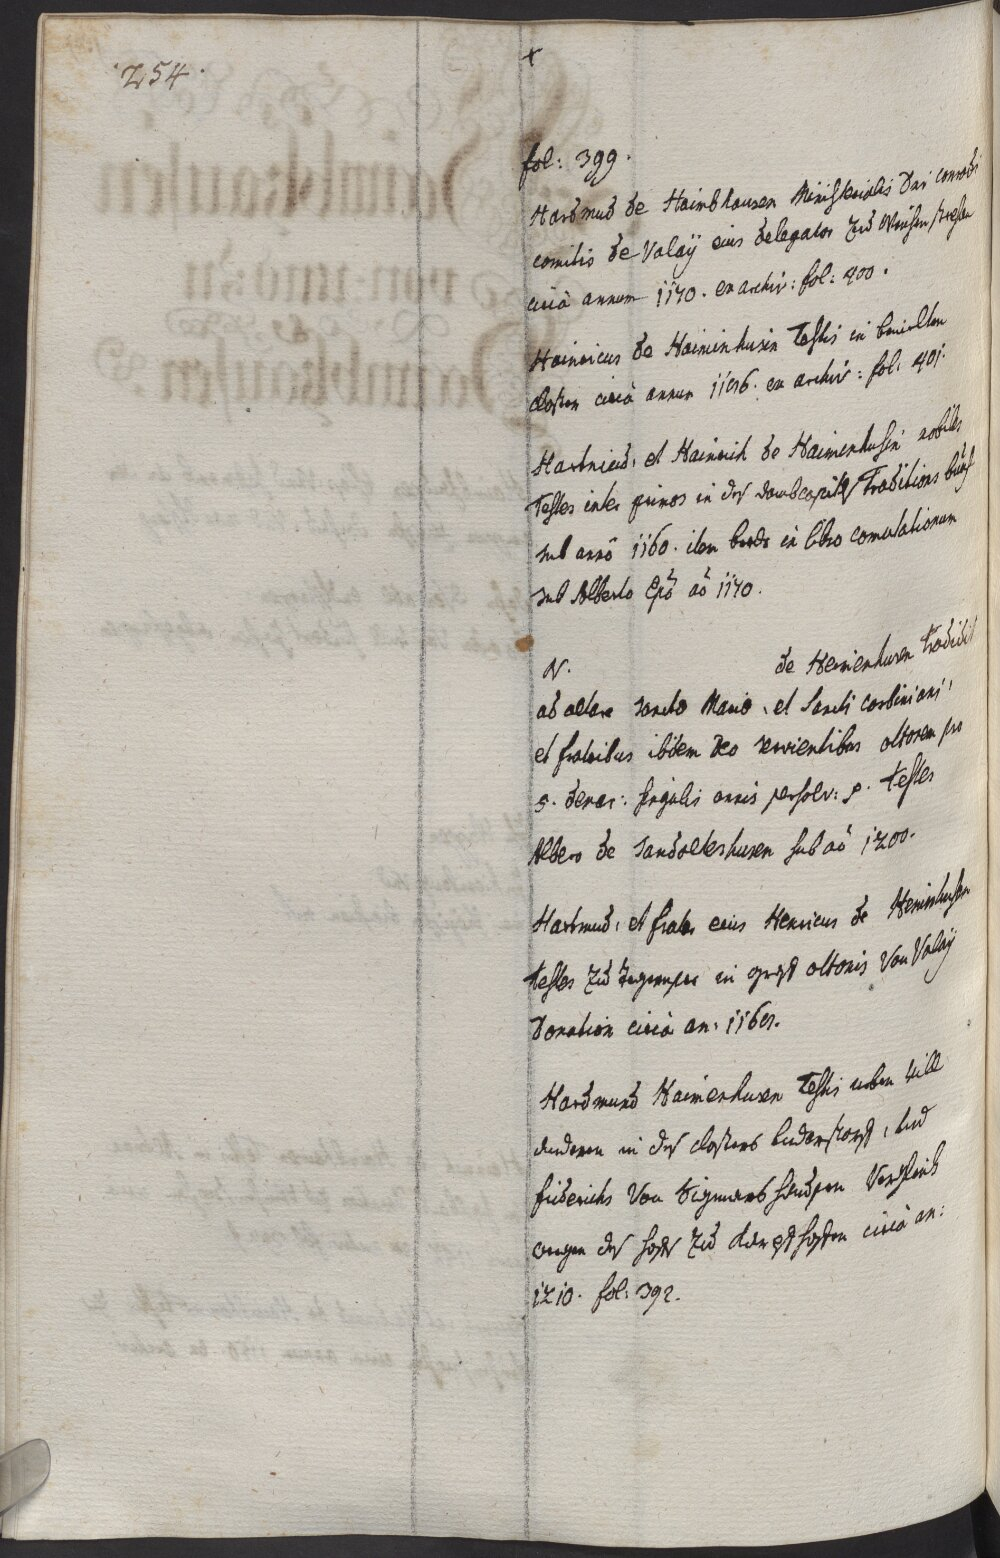 254.
fol: 399.
Hardmud de Haimbhausen Ministerialis Dni conradi
comitis de Valaÿ eius delegator zu
circà annum 1170. ex archiv: fol: 400.
Hainricus de Haiminhusin Testis in
closter circà annum 1196. ex archiv: fol: 401.
Hartnicus, et Hainrich de Haimenhusin nobiles
Testes inter primos in des Traditions
sub anno 1160. item in libro comutationum
sub Alberto Epo ao 1170.
N. de Hemenhusen tradidit
ad altare sancto Mario, et Sancti corbiniani,
et fratribus ibidem Deo servientibus oltorem pro
5. denar: singulis annis persolv: p. Testes
Albero de Sandolteshusen sub ao 1200.
Hartmud, et frater eius Henricus de Heminhusen
Testes zu in ottonis Von Valaÿ
Donation circà an: 1169.
Hardmund Haimenhusen Testis neben vill
anderen in des closters, und
friderichs Von Vergleich
wegen der zu circà an:
1210. fol: 392.